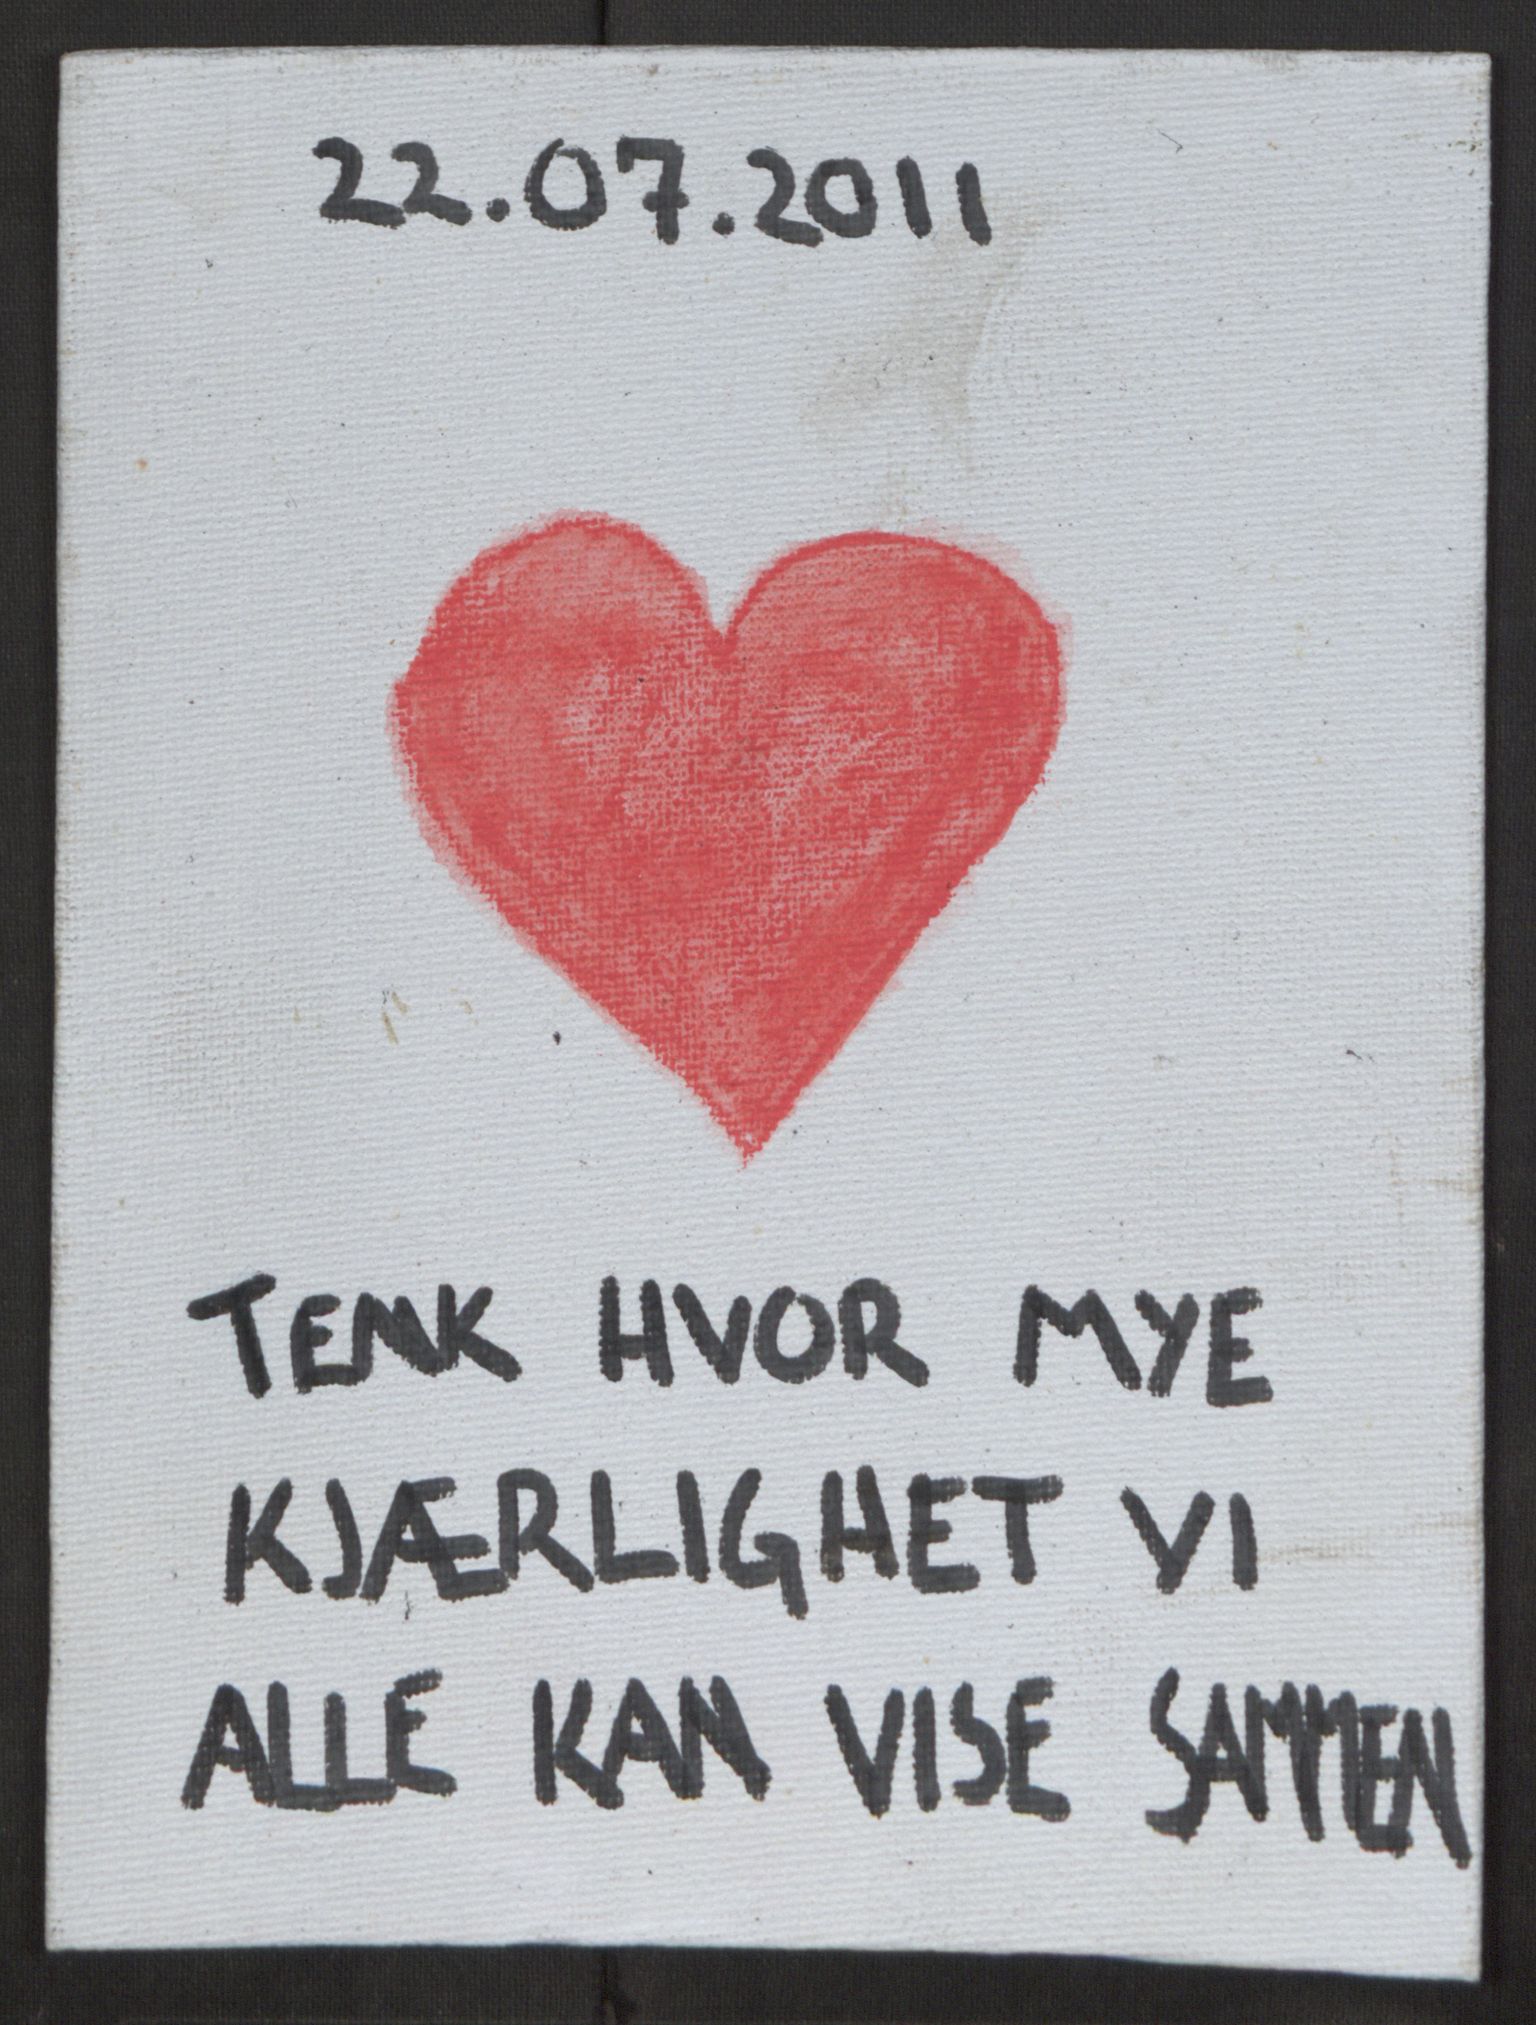 22.07.2011
TENK HVOR MYE
KJÆRLIGHET VI
ALLE KAN VISE SAMMEN